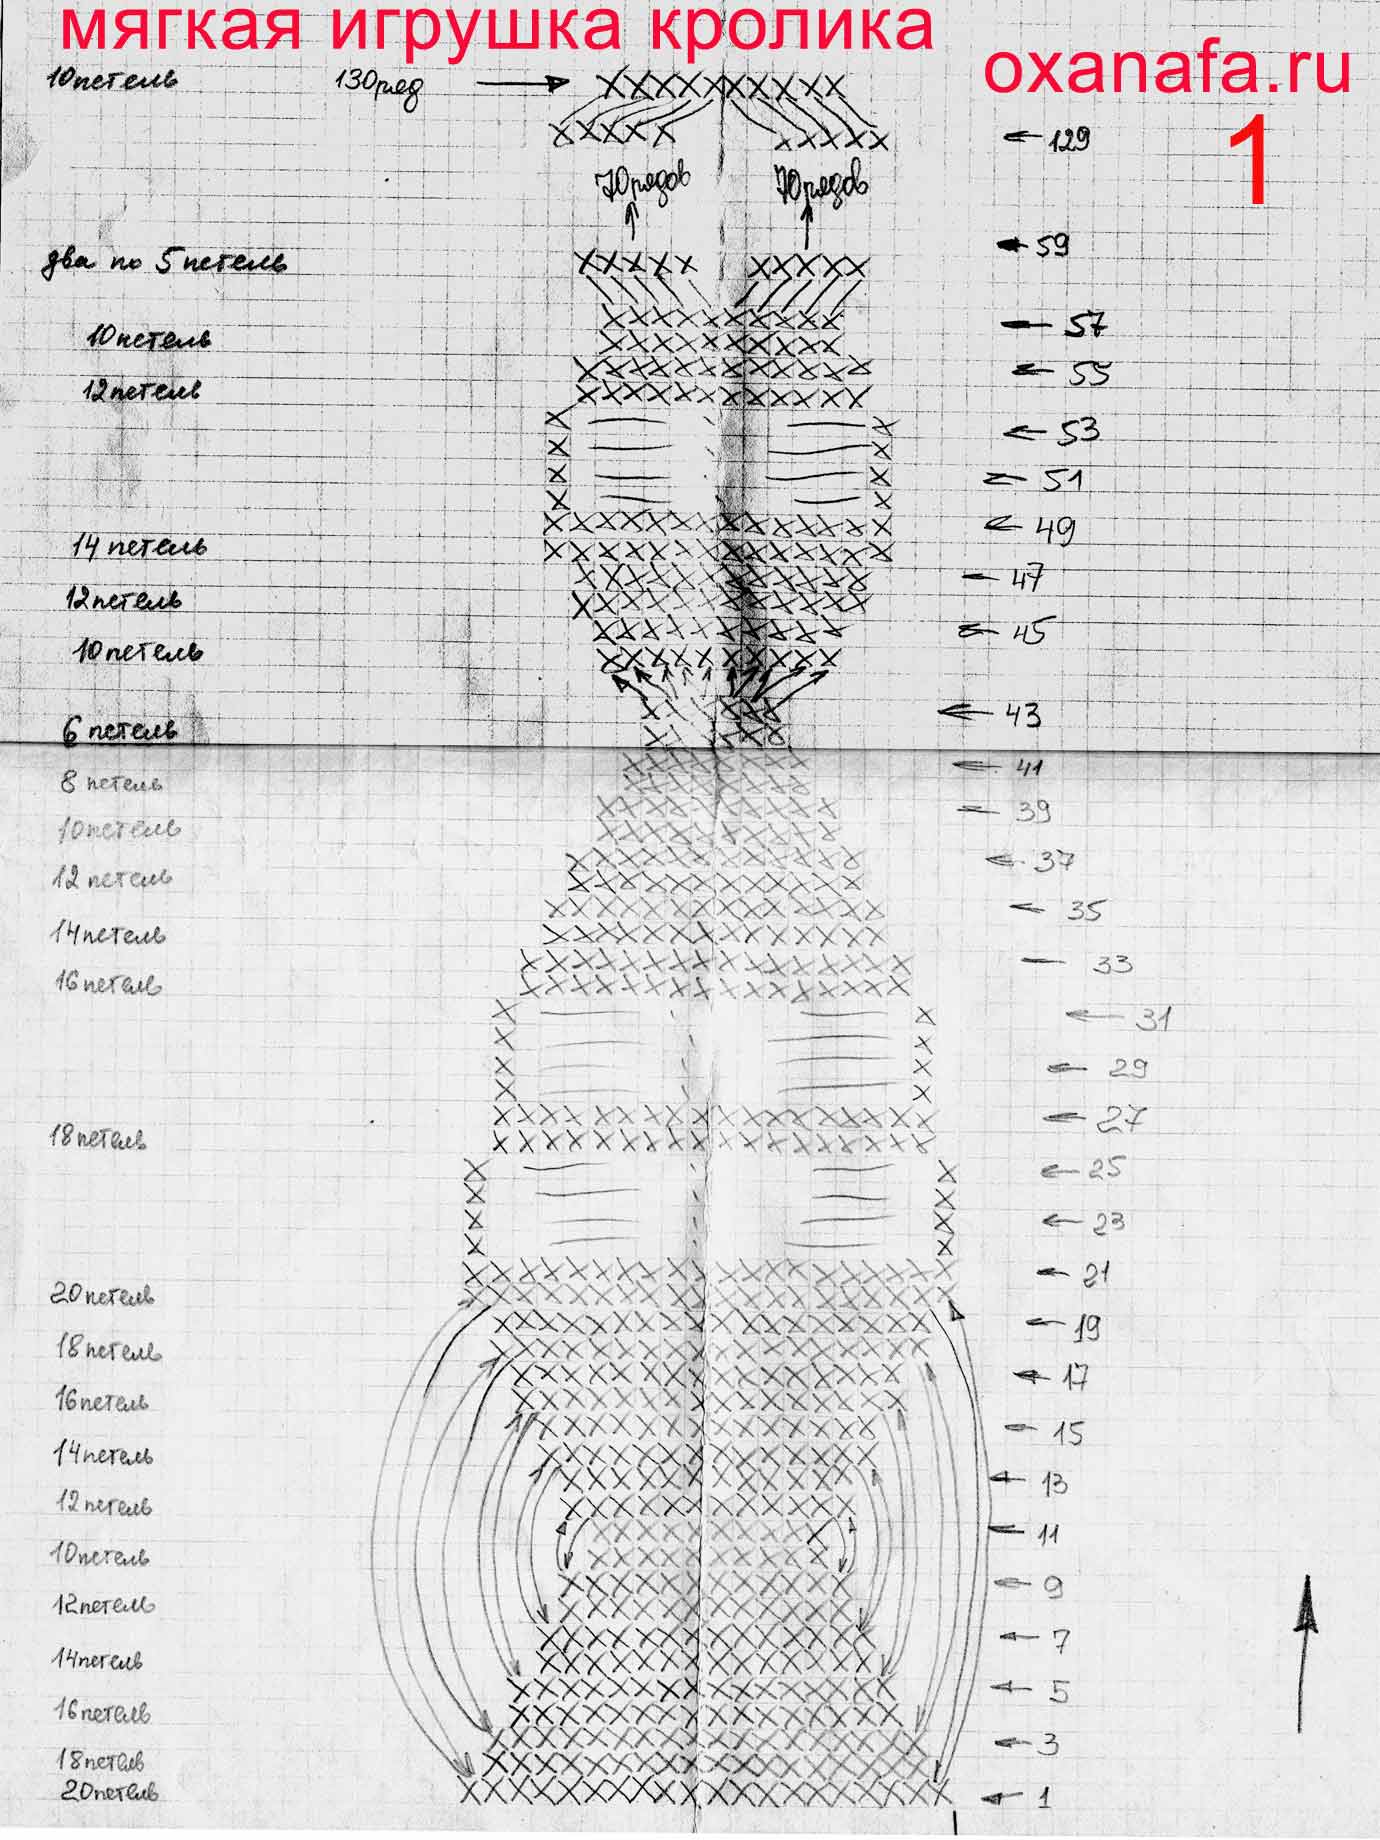 мягкая игрушка кролика
oxanafa.ru
1
10 петель 130 ряд
129
70 рядов 70 рядов
59
два по 5 петель
57
10 петель
55
12 петель
53
51
49
14 петель
47
12 петель
45
10 петель
43
6 петель
41
8 петель
39
10 петель
37
12 петель
35
14 петель
33
16 петель
31
29
27
18 петель
25
23
21
20 петель
19
18 петель
17
16 петель
15
14 петель
13
12 петель
11
10 петель
9
12 петель
7
14 петель
5
16 петель
3
18 петель
20 петель
1